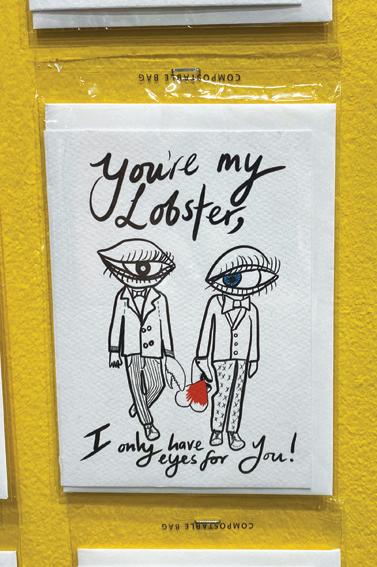 COMPOSTABLE BAG
You're my
Lobster,
I only have
eyes for You!
COMPOSTABLE BAG